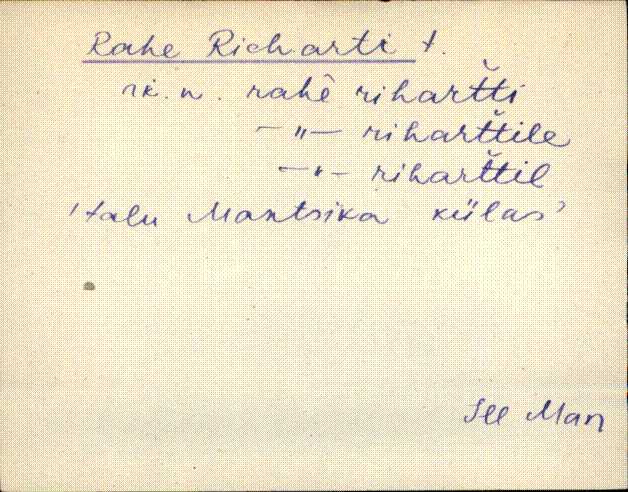 Rahe Richarti t.
rk. n. rahè rihartt̆i
—"— rihartt̆ile
—"— rihartt̆il
'talu Mantsika külas'
Se Man